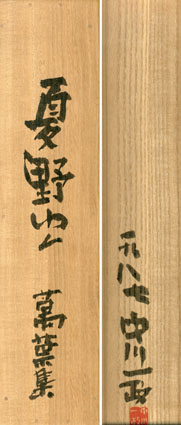 夏野ゆく
萬葉集
一九八七 中川一政